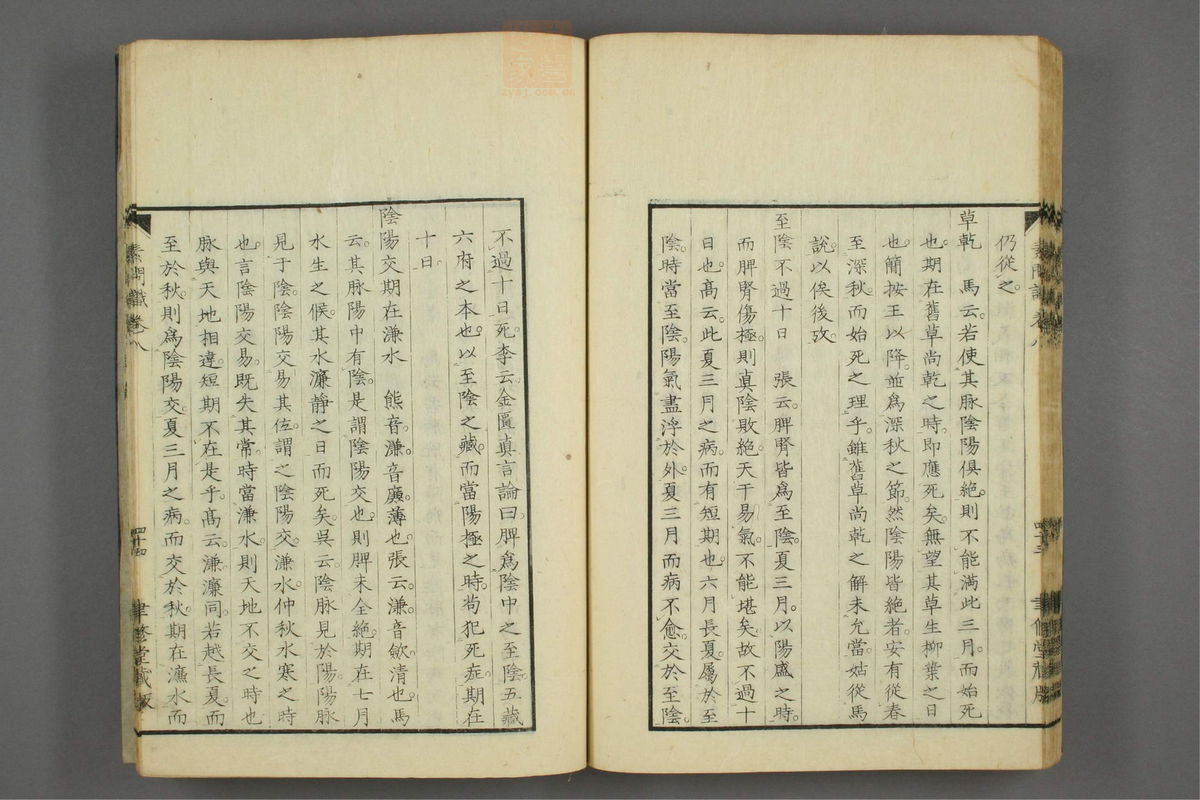 仍從之。
草乾　馬云。若使其脉陰陽俱絶。則不能滿此三月。而始死
也。期在舊草尚乾之時。即應死矣。無望其草生柳葉之日
也。簡按王以降。並爲深秋之節。然陰陽皆絶者。安有從春
至深秋。而始死之理乎。雖舊草尚乾之解未允當。姑從馬
說。以俟後攷。
至陰不過十日　張云。脾腎皆爲至陰。夏三月。以陽盛之時。
而脾腎傷極。則眞陰敗絶。天干易氣。不能堪矣。故不過十
日也。髙云。此夏三月之病。而有短期也。六月長夏。屬於至
陰。時當至陰。陽氣盡浮於外。夏三月而病不愈。交於至陰。
不過十日死。李云。金匱眞言論曰。脾爲陰中之至陰。五藏
六府之本也。以至陰之藏。而當陽極之時。苟犯死症。期在
十日。
陰陽交期在溓水　熊音。溓。音廉。薄也。張云。溓。音歛。清也。馬
云。其脉陽中有陰。是謂陰陽交也。則脾未全絶。期在七月
水生之候。其水濂靜之日而死矣。吳云。陰脉見於陽。陽脉
見于陰。陰陽交易其位。謂之陰陽交。溓水。仲秋水寒之時
也。言陰陽交易。既失其常。時當溓水。則天地不交之時也
脉與天地相違。短期不在是乎。髙云。溓濂同。若越長夏。而
至於秋。則爲陰陽交。夏三月之病。而交於秋。期在濂水而
素問識卷八
四十三
聿修堂藏版
素問識卷八
四十四
聿修堂藏版
zysj.com.cn